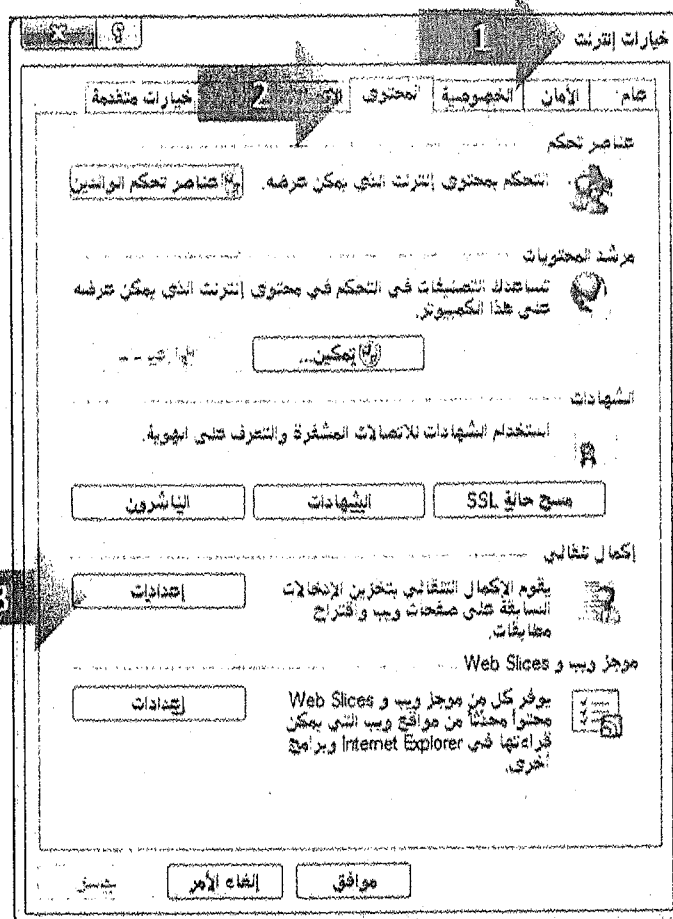 خيارات إنترنت
1
2
عام
الأمان
الخصوصية
المحتوى
خيارات متقدمة
عناصر تحكم
التحكم بمحتوى إنترنت الذي يمكن عرضه.
عناصر تحكم الوالدين
مرشد المحتويات
تساعدك التصنيفات في التحكم في محتوى إنترنت الذي يمكن عرضه
على هذا الكمبيوتر.
تمكين...
الشهادات
استخدام الشهادات للاتصالات المشفرة والتعرف على الهوية.
مسح حالة SSL
الشهادات
الناشرون
إكمال تلقائي
3
يقوم الإكمال التلقائي بتخزين الإدخالات
السابقة على صفحات ويب واقتراح
مطابقات.
إعدادات
موجز ويب و Web Slices
يوفر كل من موجز ويب و Web Slices
محتواً محدثًا من مواقع ويب التي يمكن
قراءتها في Internet Explorer وبرامج
أخرى.
إعدادات
موافق
إلغاء الأمر